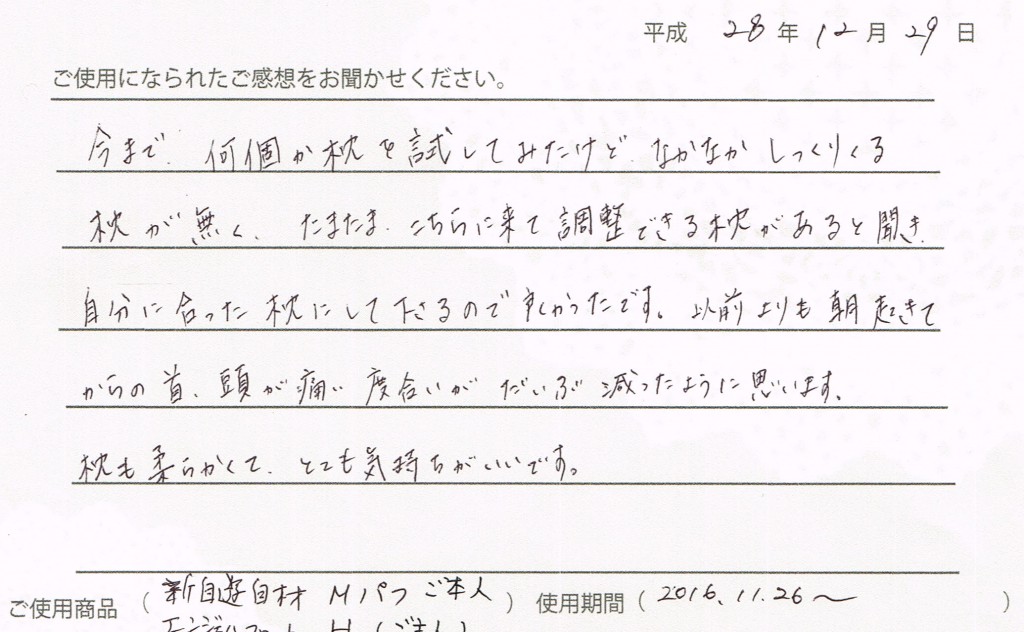 平成 28 年 12 月 29 日
ご使用になられたご感想をお聞かせください。
今まで、何個か枕を試してみたけど、なかなかしっくりくる
枕が無く、たまたま、こちらに来て調整できる枕があると聞き、
自分に合った枕にして下さるので良かったです。以前よりも朝起きて
からの首、頭が痛い度合いがだいぶ減ったように思います。
枕も柔らかくて、とても気持ちがいいです。
新自遊自材 Mパフ ご本人
ご使用商品 ( ) 使用期間 ( 2016.11.26〜 )